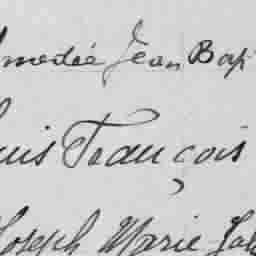 Amedée Jean Bap
ouis François
Joseph Marie